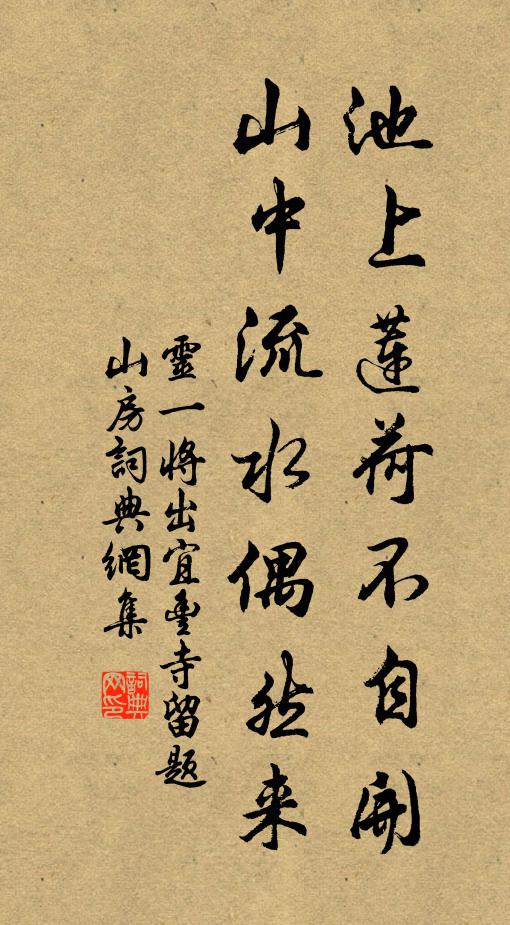 池上蓮荷不自開
山中流水偶然来
靈一將出宜豐寺留題
山房詞典網集
詞典
网印